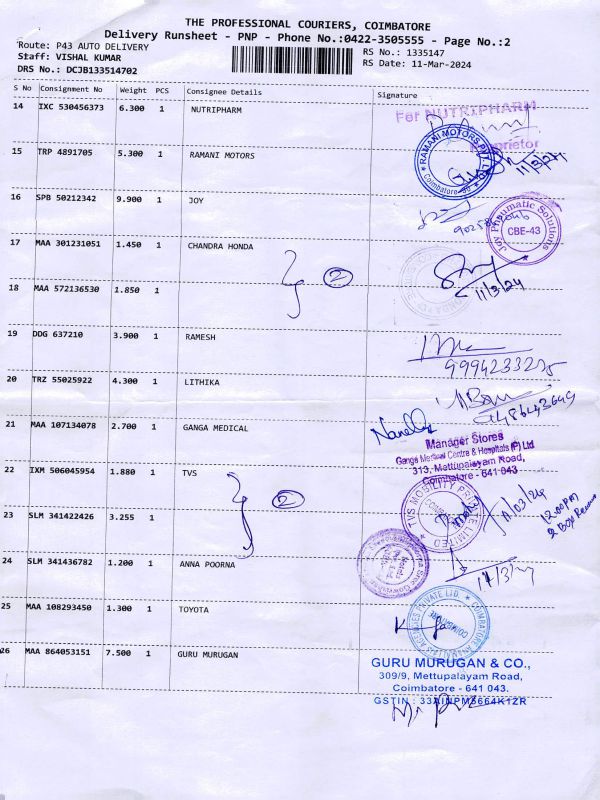 THE PROFESSIONAL COURIERS, COIMBATORE
Delivery Runsheet - PNP - Phone No.:0422-3505555 - Page No.:2
Route: P43 AUTO DELIVERY
Staff: VISHAL KUMAR
DRS No.: DCJB133514702
RS No.: 1335147
RS Date: 11-Mar-2024
S No Consignment No Weight PCS Consignee Details Signature
14 IXC 530456373 6.300 1 NUTRIPHARM
For NUTRIPHARM
Proprietor
15 TRP 4891705 5.300 1 RAMANI MOTORS
RAMANI MOTORS PVT LTD
Coimbatore
11/3/24
16 SPB 50212342 9.900 1 JOY
Joy Pneumatic Solutions
CBE-43
17 MAA 301231051 1.450 1 CHANDRA HONDA
2
11/3/24
18 MAA 572136530 1.850 1
19 DDG 637210 3.900 1 RAMESH
20 TRZ 55025922 4.300 1 LITHIKA
21 MAA 107134078 2.700 1 GANGA MEDICAL
Manager Stores
Ganga Medical Centre & Hospitals (P) Ltd
313, Mettupalayam Road,
Coimbatore - 641 043
22 IXM 506045954 1.880 1 TVS
2
TVS MOBILITY PRIVATE LIMITED
11/03/24
12.00pm
2 Box
23 SLM 341422426 3.255 1
24 SLM 341436782 1.200 1 ANNA POORNA
11/3/24
25 MAA 108293450 1.300 1 TOYOTA
COIMBATORE
26 MAA 864053151 7.500 1 GURU MURUGAN
GURU MURUGAN & CO.,
309/9, Mettupalayam Road,
Coimbatore - 641 043.